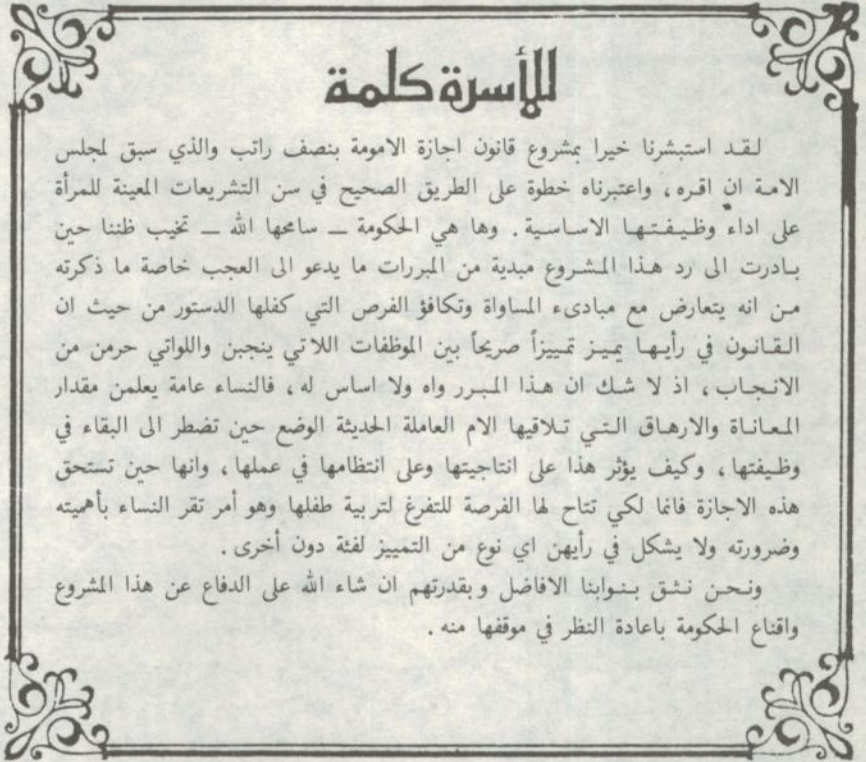 للأسرة كلمة
لقد استبشرنا خيرا بمشروع قانون اجازة الامومة بنصف راتب والذي سبق لمجلس
الامة ان اقره، واعتبرناه خطوة على الطريق الصحيح في سن التشريعات المعينة للمرأة
على اداء وظيفتها الاساسية. وها هي الحكومة — سامحها الله — تخيب ظننا حين
بادرت الى رد هذا المشروع مبدية من المبررات ما يدعو الى العجب خاصة ما ذكرته
من انه يتعارض مع مبادىء المساواة وتكافؤ الفرص التي كفلها الدستور من حيث ان
القانون في رأيها يميز تمييزاً صريحاً بين الموظفات اللاتي ينجبن واللواتي حرمن من
الانجاب، اذ لا شك ان هذا المبرر واه ولا اساس له، فالنساء عامة يعلمن مقدار
المعاناة والارهاق التي تلاقيها الام العاملة الحديثة الوضع حين تضطر الى البقاء في
وظيفتها، وكيف يؤثر هذا على انتاجيتها وعلى انتظامها في عملها، وانها حين تستحق
هذه الاجازة فانما لكي تتاح لها الفرصة للتفرغ لتربية طفلها وهو أمر تقر النساء بأهميته
وضرورته ولا يشكل في رأيهن اي نوع من التمييز لفئة دون أخرى.
ونحن نثق بنوابنا الافاضل وبقدرتهم ان شاء الله على الدفاع عن هذا المشروع
واقناع الحكومة باعادة النظر في موقفها منه.